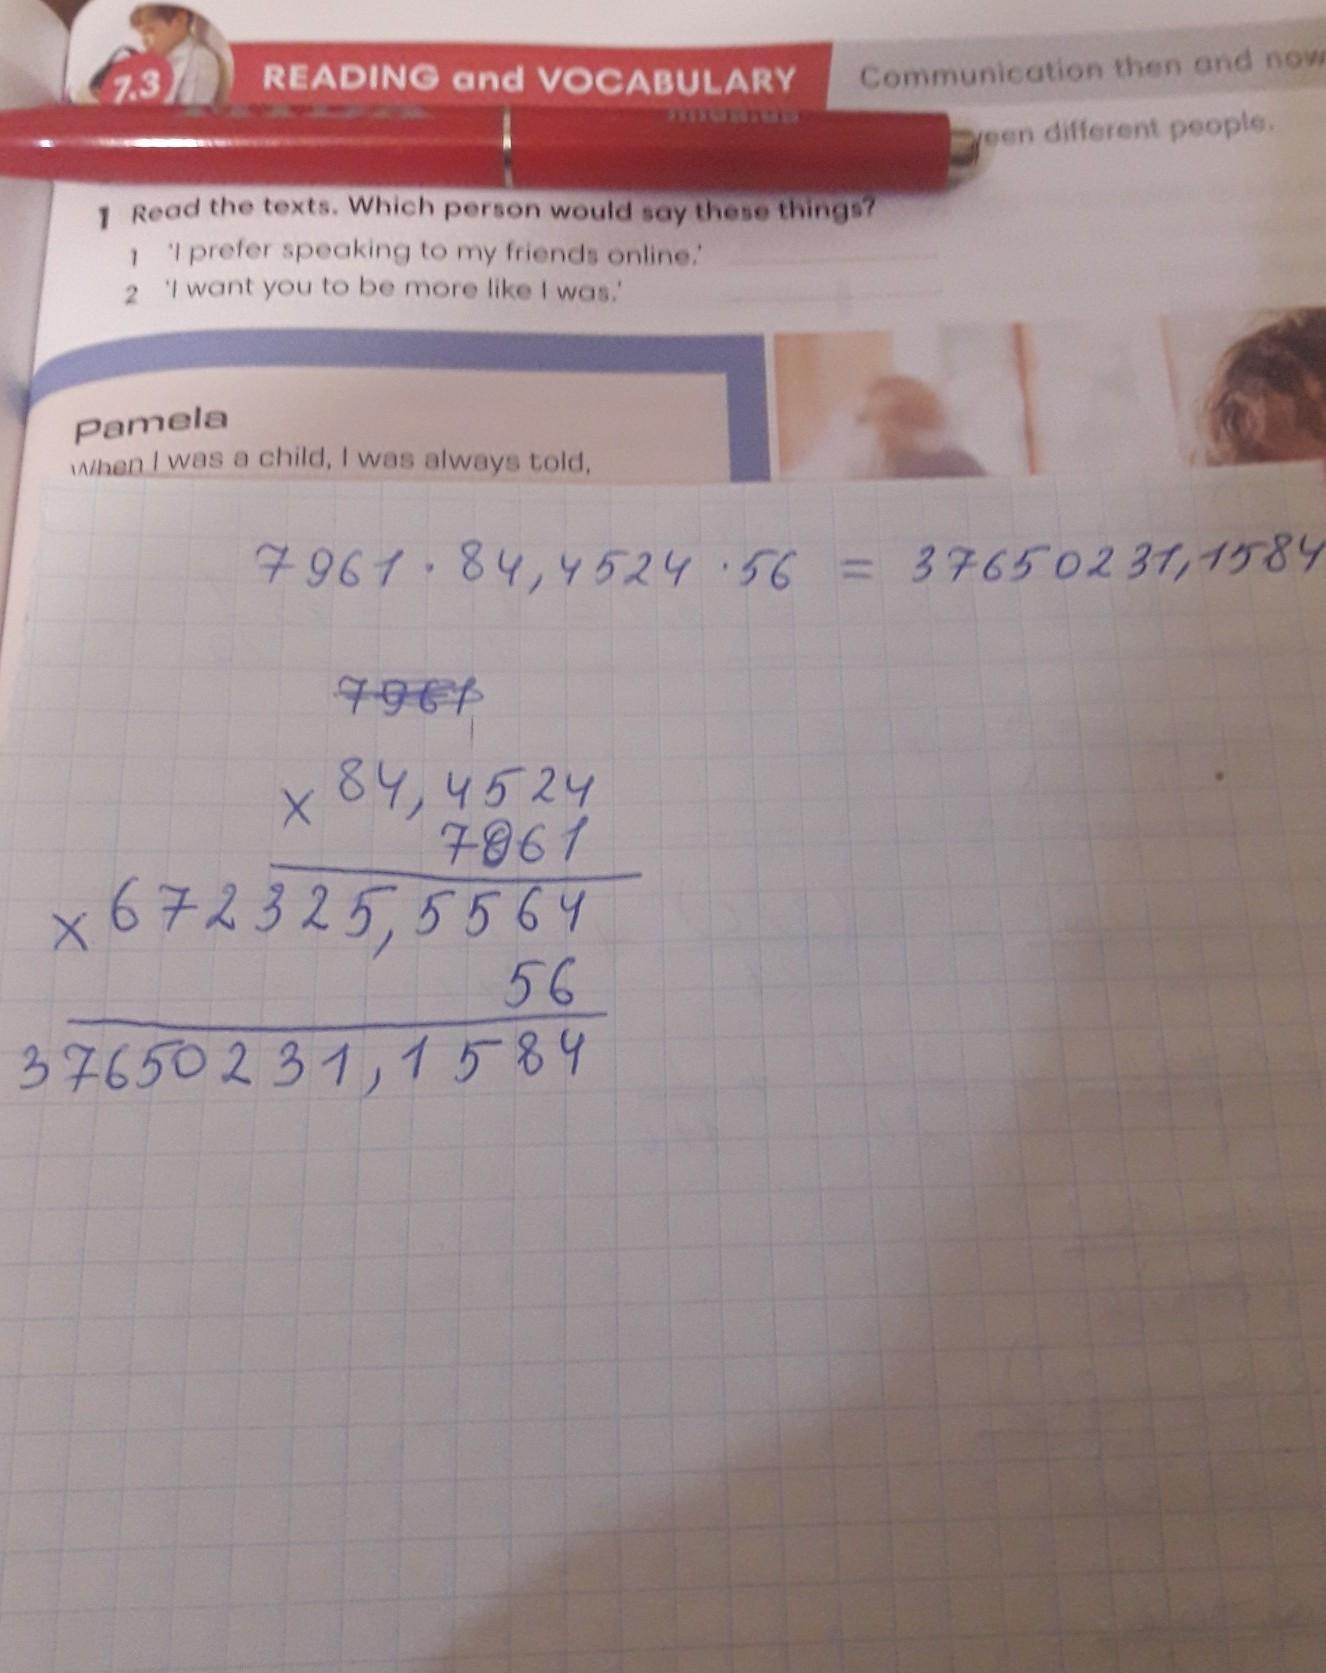 7.3 READING and VOCABULARY Communication then and now
different people.
1 Read the texts. Which person would say these things?
1 'I prefer speaking to my friends online.'
2 'I want you to be more like I was.'
Pamela
When I was a child, I was always told,
7961 · 84,4524 · 56 = 37650231,1584
7961
× 84,4524
7961
× 672325,5564
56
37650231,1584